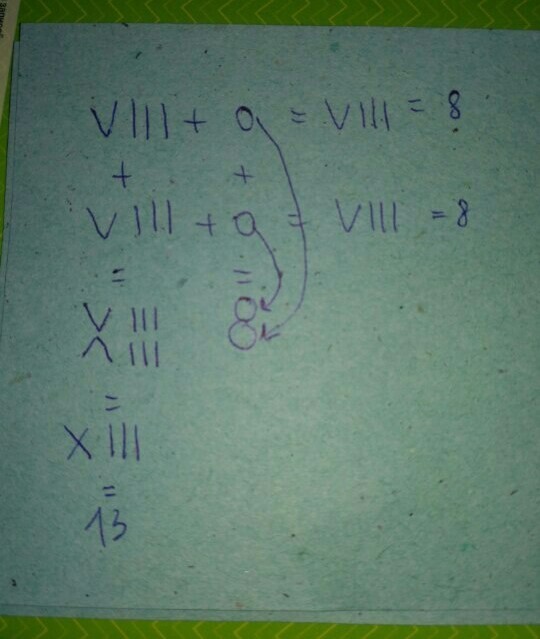 VIII + 0 = VIII = 8
+ +
VIII + 0 = VIII = 8
= =
VIII 0
ΛIII 0
=
XIII
=
13